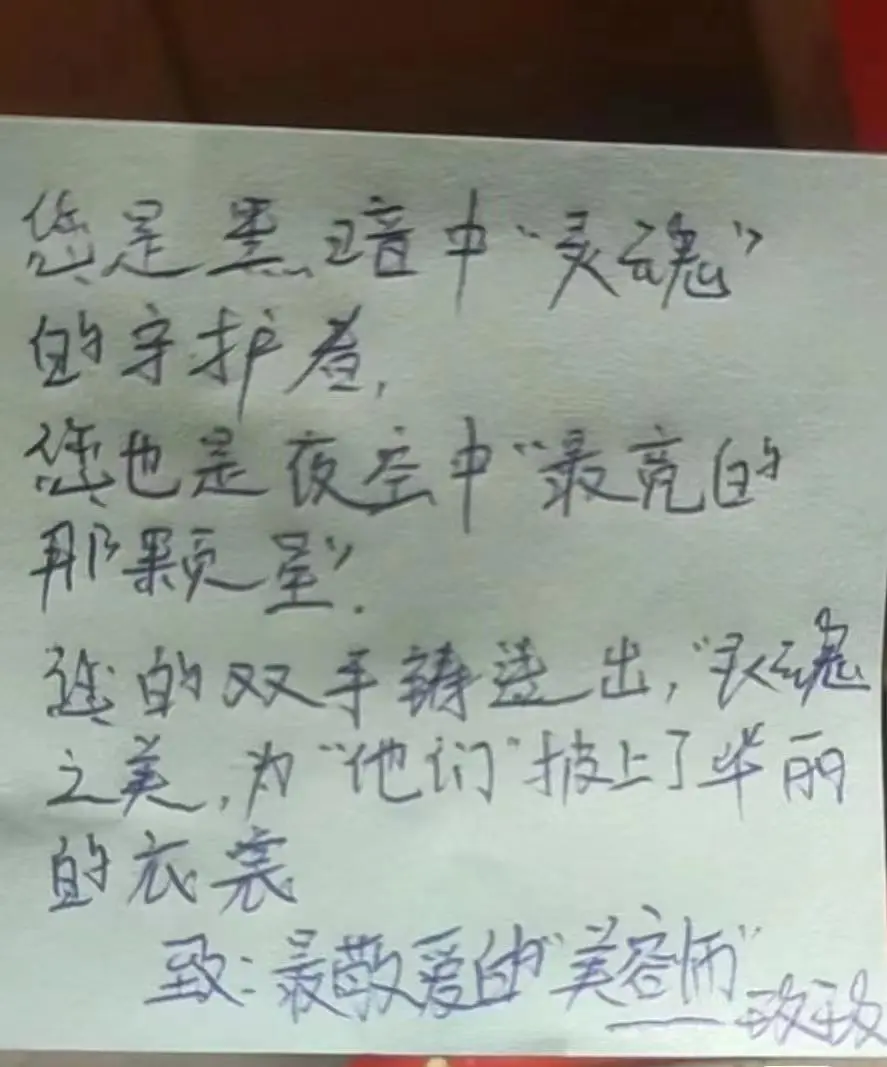 您是黑暗中“灵魂”
的守护者,
您也是夜空中“最亮的
那颗星”.
您的双手铸造出,“灵魂
之美,为“他们”披上了华丽
的衣裳
致:最敬爱的“美容师”